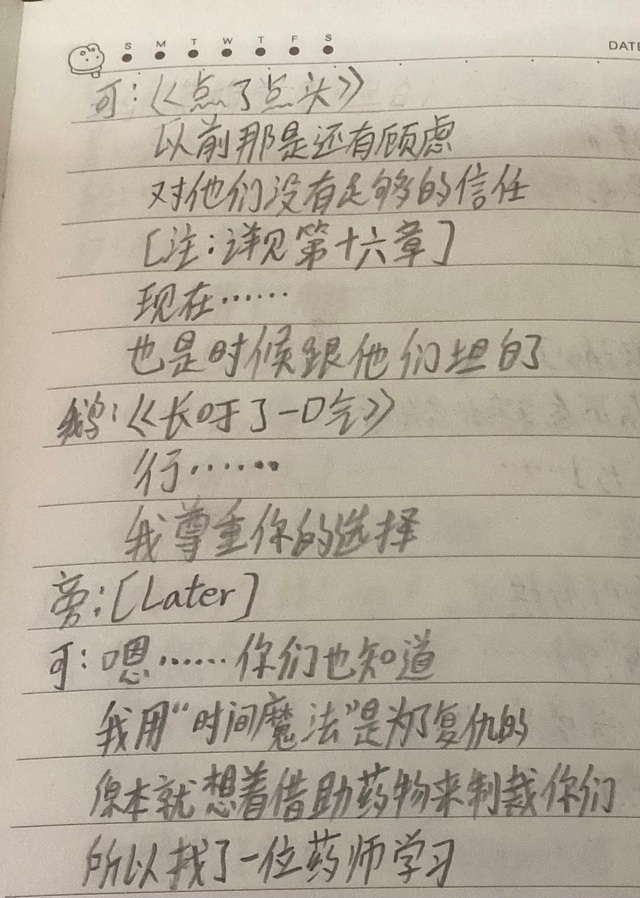 S M T W T F S
DATE
可：《点了点头》
以前那是还有顾虑
对他们没有足够的信任
[注：详见第十六章]
现在……
也是时候跟他们坦白了
鹅：《长吁了一口气》
行……
我尊重你的选择
旁：[Later]
可：嗯……你们也知道
我用“时间魔法”是为了复仇的
原本就想着借助药物来制裁你们
所以找了一位药师学习